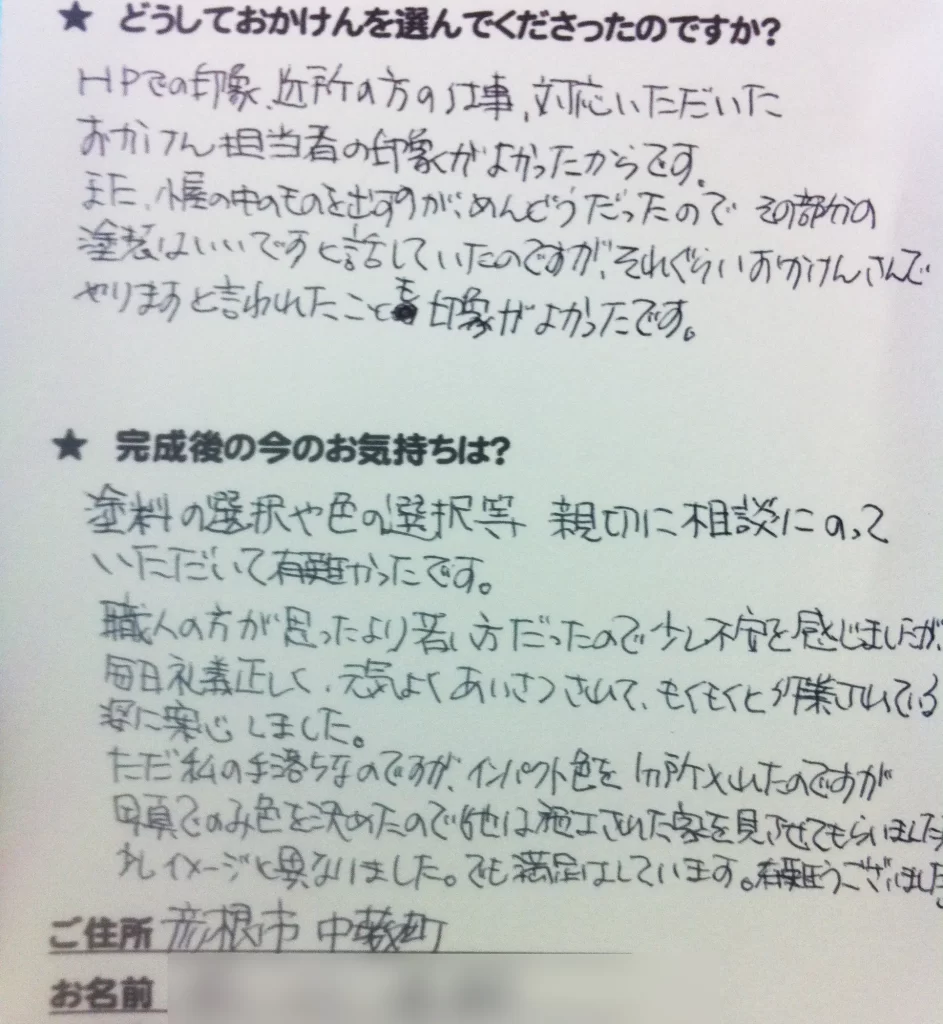 ★ どうしておかけんを選んでくださったのですか?
HPでの印象、近所の方の仕事、対応いただいた
おかけん担当者の印象がよかったからです。
また、小屋の中のものを出すのが、めんどうだったので その部分の
塗装はいいですと話していたのですが、それぐらいおかけんさんで
やりますと言われたことも印象がよかったです。
★ 完成後の今のお気持ちは?
塗料の選択や色の選択等 親切に相談にのって
いただいて有難かったです。
職人の方が思ったより若い方だったので少し不安を感じましたが、
毎日礼義正しく、元気よくあいさつされて、もくもくと作業されている
姿に安心しました。
ただ私の手落ちなのですが、インパクト色を1ヶ所入れたのですが
写真でのみ色を決めたので(他は施工された家を見させてもらいました
少しイメージと異なりました。でも満足はしています。有難うございました
ご住所 彦根市 中藪町
お名前